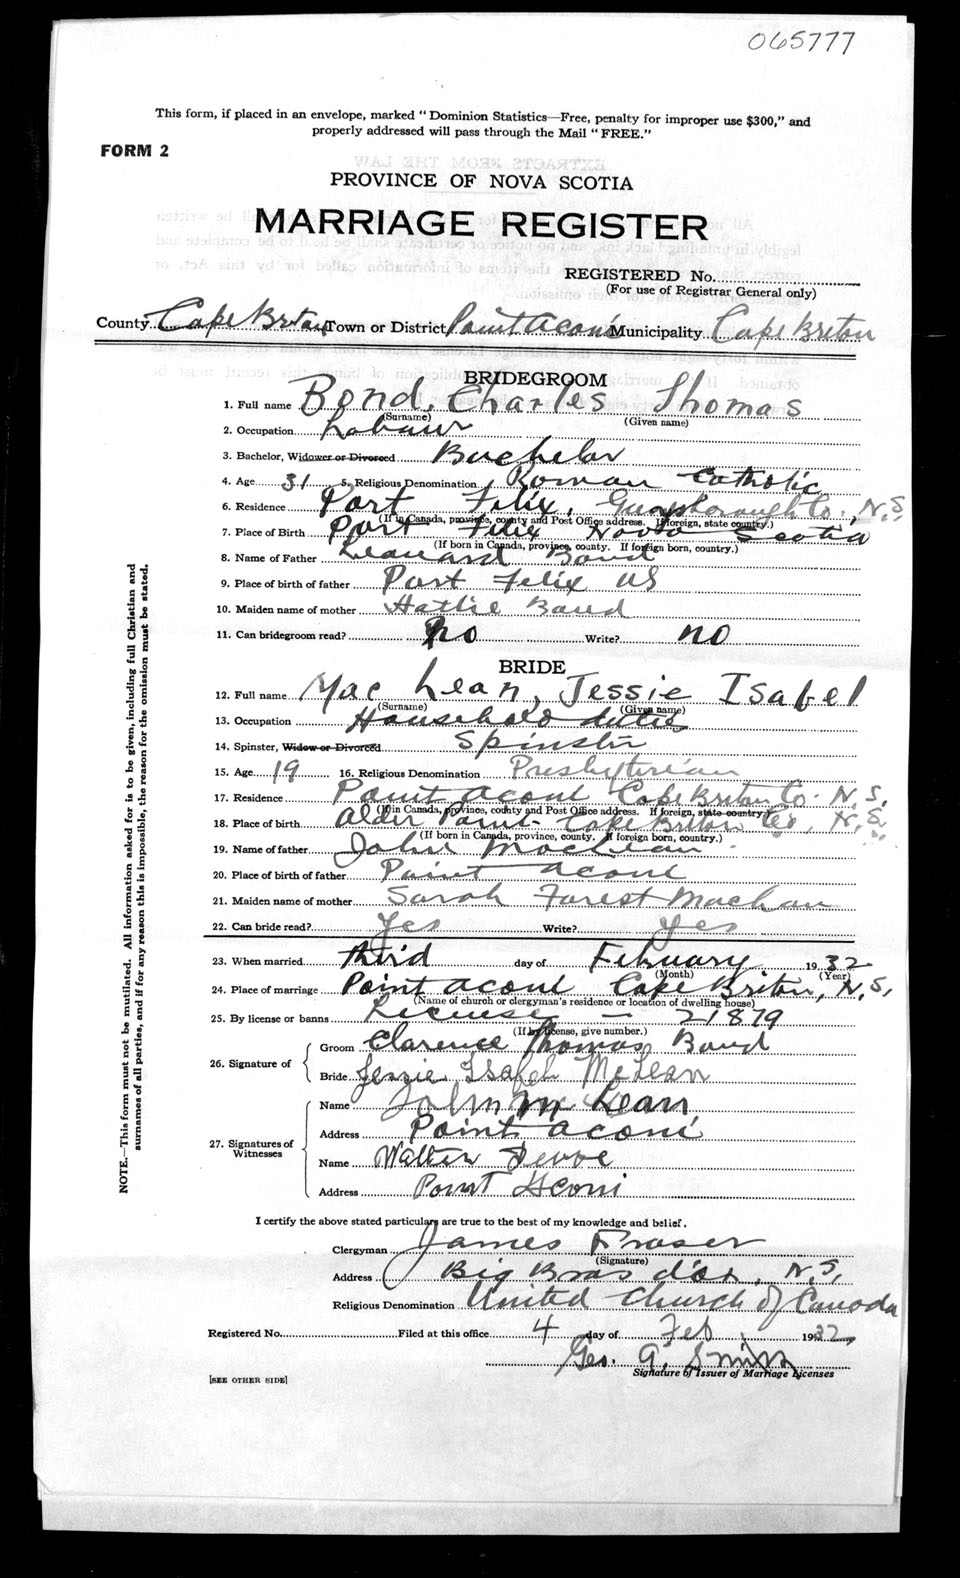 065777
This form, if placed in an envelope, marked "Dominion Statistics—Free, penalty for improper use $300," and
properly addressed will pass through the Mail "FREE."
FORM 2
PROVINCE OF NOVA SCOTIA
MARRIAGE REGISTER
REGISTERED No.
(For use of Registrar General only)
County Cape Breton Town or District Point Aconi Municipality Cape Breton
BRIDEGROOM
1. Full name Bond, Charles Thomas
(Surname) (Given name)
2. Occupation Labour
3. Bachelor, Widower or Divorced Bachelor
4. Age 31 5. Religious Denomination Roman Catholic
6. Residence Port Felix, Guysborough Co., N.S.
(If in Canada, province, county and Post Office address. If foreign, state country.)
7. Place of Birth Port Felix Nova Scotia
(If born in Canada, province, county. If foreign born, country.)
8. Name of Father Leanard Bond
9. Place of birth of father Port Felix NS
10. Maiden name of mother Hattie Bond
11. Can bridegroom read? no Write? no
BRIDE
12. Full name MacLean, Jessie Isabel
(Surname) (Given name)
13. Occupation Household duties
14. Spinster, Widow or Divorced Spinster
15. Age 19 16. Religious Denomination Presbyterian
17. Residence Point Aconi Cape Breton Co. N.S.
(If in Canada, province, county and Post Office address. If foreign, state country.)
18. Place of birth Alder Point Cape Breton Co., N.S.
(If born in Canada, province, county. If foreign born, country.)
19. Name of father John MacLean
20. Place of birth of father Point Aconi
21. Maiden name of mother Sarah Forest
22. Can bride read? Yes Write? Yes
23. When married third day of February 1932
(Month) (Year)
24. Place of marriage Point Aconi Cape Breton, N.S.
(Name of church or clergyman's residence or location of dwelling house)
25. By license or banns License — 21879
(If by license, give number.)
26. Signature of
Groom Clarence Thomas Bond
Bride Jessie Isabel McLean
27. Signatures of
Witnesses
Name John McLean
Address Point Aconi
Name Walter
Address Point Aconi
I certify the above stated particulars are true to the best of my knowledge and belief.
Clergyman James Fraser
(Signature)
Address Big Bras d'or, N.S.
Religious Denomination United Church of Canada
Registered No. Filed at this office 4 day of Feb 1932
Geo. G. Smith
Signature of Issuer of Marriage Licenses
[SEE OTHER SIDE]
NOTE.—This form must not be mutilated. All information asked for is to be given, including full Christian and
surnames of all parties, and if for any reason this is impossible, the reason for the omission must be stated.